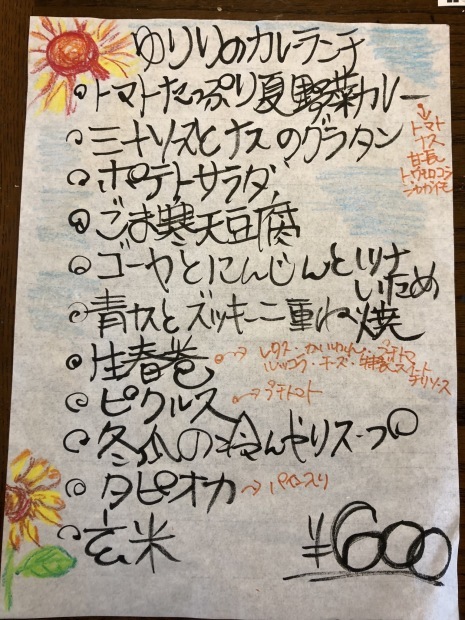 ゆりりのカレーランチ
トマトたっぷり夏野菜カレー
→トマト
ナス
甘長
トウモロコシ
ジャガイモ
ミートソースとナスのグラタン
ポテトサラダ
ごま寒天豆腐
ゴーヤとにんじんとツナ
いため
青ナスとズッキーニ重ね焼
生春巻→レタス・かいわれ・プチトマ
ルッコラ・チーズ・特製スイート
チリソース
ピクルス→プチトマト
冬瓜の冷んやりスープ
タピオカ→パイン入り
玄米
¥600